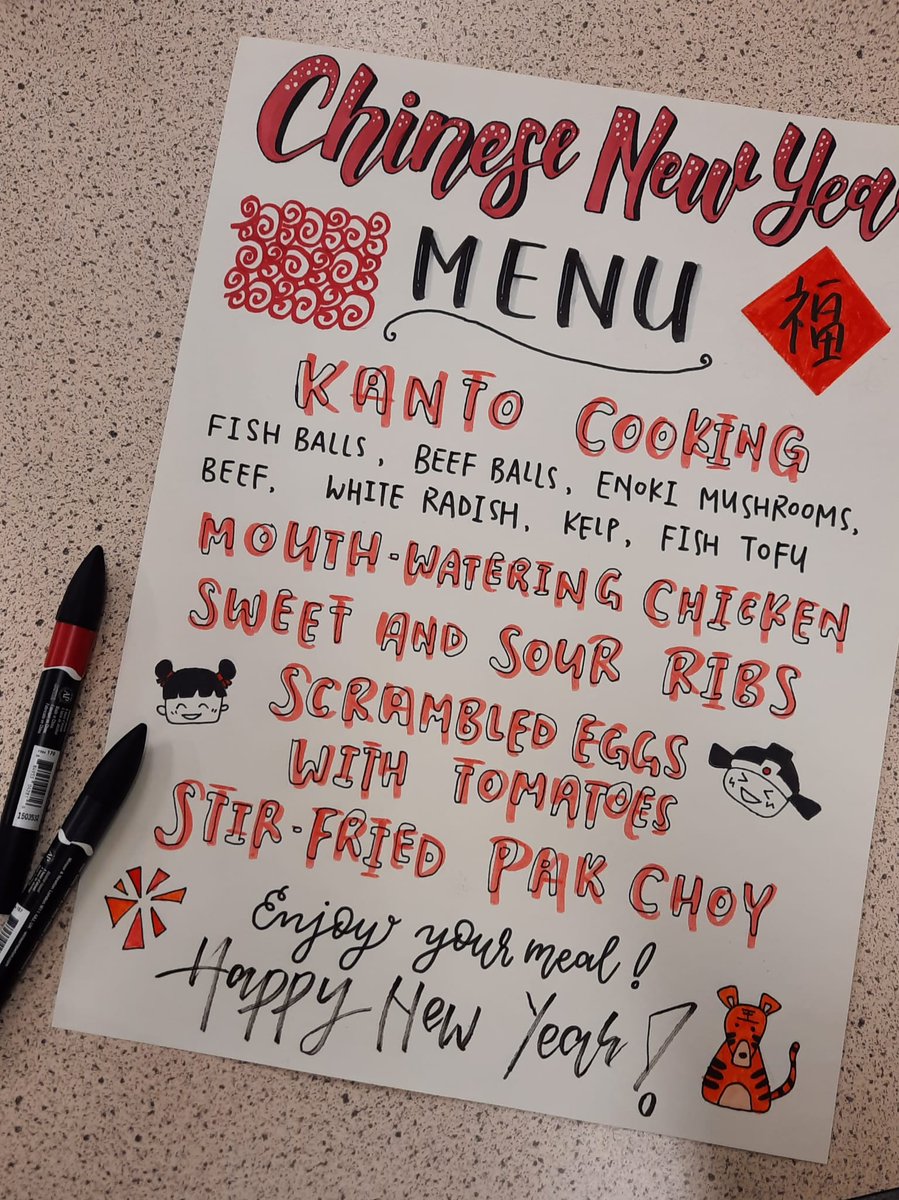 Chinese New Yea
MENU
福
KANTO COOKING
FISH BALLS, BEEF BALLS, ENOKI MUSHROOMS,
BEEF, WHITE RADISH, KELP, FISH TOFU
MOUTH-WATERING CHICKEN
SWEET AND SOUR RIBS
SCRAMBLED EGGS
WITH TOMATOES
STIR-FRIED PAK CHOY
Enjoy your meal!
Happy New Year!